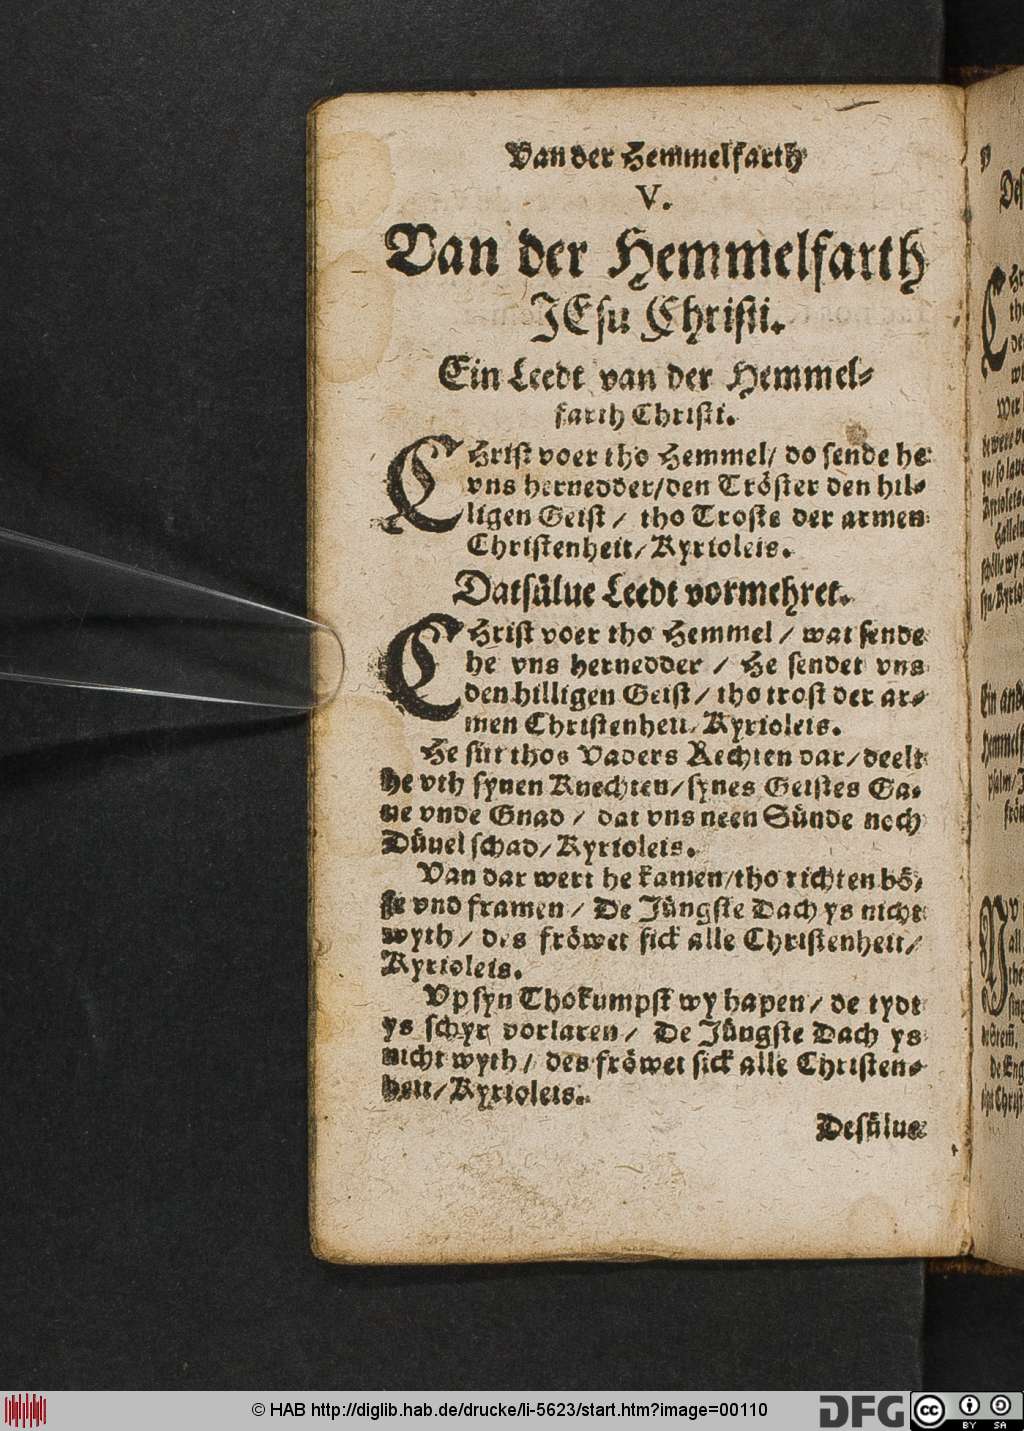 Van der Hemmelfarth
V.
Van der Hemmelfarth
JEsu Christi.
Ein Leedt van der Hemmel⸗
farth Christi.
CHrist voer tho Hemmel/ do sende he
vns hernedder/den Tröster den hil⸗
ligen Geist / tho Troste der armen
Christenheit/ Kyrioleis.
Datsülue Leedt vormehret.
CHrist voer tho Hemmel / wat sende
he vns hernedder / He sendet vns
den hilligen Geist/ tho trost der ar⸗
men Christenheit/ Kyrioleis.
He sitt thos Vaders Rechten dar/ deelt
he vth synen Knechten/ synes Geistes Ga⸗
ue vnde Gnad / dat vns neen Sünde noch
Düuel schad/ Kyrioleis.
Van dar wert he kamen/tho richten bö⸗
se vnd framen / De Jüngste Dach ys nicht
wyth / des fröwet sick alle Christenheit/
Kyrioleis.
Vp syn Thokumpst wy hapen/ de tydt
ys schyr vorlaten / De Jüngste Dach ys
nicht wyth / des fröwet sick alle Christen⸗
heit/ Kyrioleis.
Desülue
© HAB http://diglib.hab.de/drucke/li-5623/start.htm?image=00110
DFG
cc
BY SA